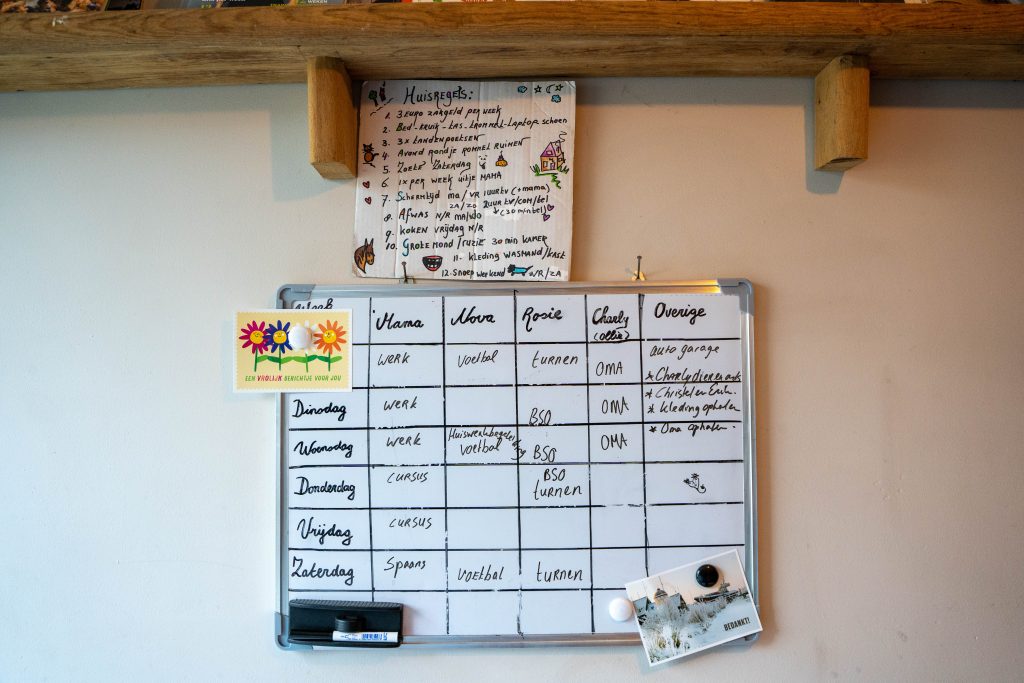 Huisregels:
1. 3 Euro zakgeld per week
2. Bed-kruik-tas-trommel-laptop schoen
3. 3x tandenpoetsen
4. Avond rondje rommel ruimen
5. Zoete Zaterdag
6. 1x per week uitje MAMA
7. Schermtijd ma/VR 1uurtv (+mama)
ZA/ZO 2uur tv/com/bel
(30 min bel)
8. Afwas N/R ma/wo
9. koken vrijdag N/R
10. Grote mond/ruzie 30 min KAMER
11. kleding WASMAND/KAST
12. Snoep weekend VR/ZA
Mama Nova Rosie Charly Overige
(Ollie)
werk voetbal turnen OMA auto garage
* Charly dierenarts
Dinsdag werk BSO OMA * Christel en Erik
* kleding ophalen
Woensdag werk Huiswerkbegeleiding voetbal BSO OMA * Oma ophalen
Donderdag cursus BSO turnen
Vrijdag cursus
Zaterdag Spaans voetbal turnen
EEN VROLIJK BERICHTJE VOOR JOU
BEDANKT!